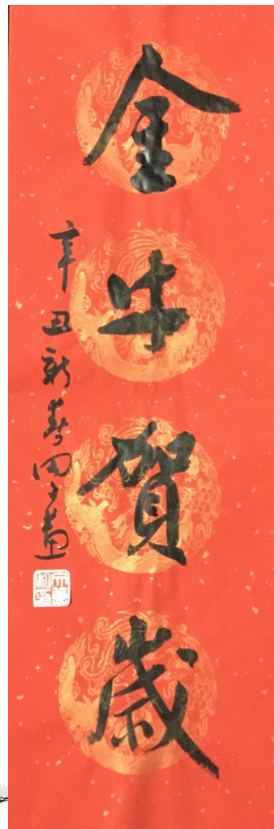 金牛賀歲
辛丑新春田